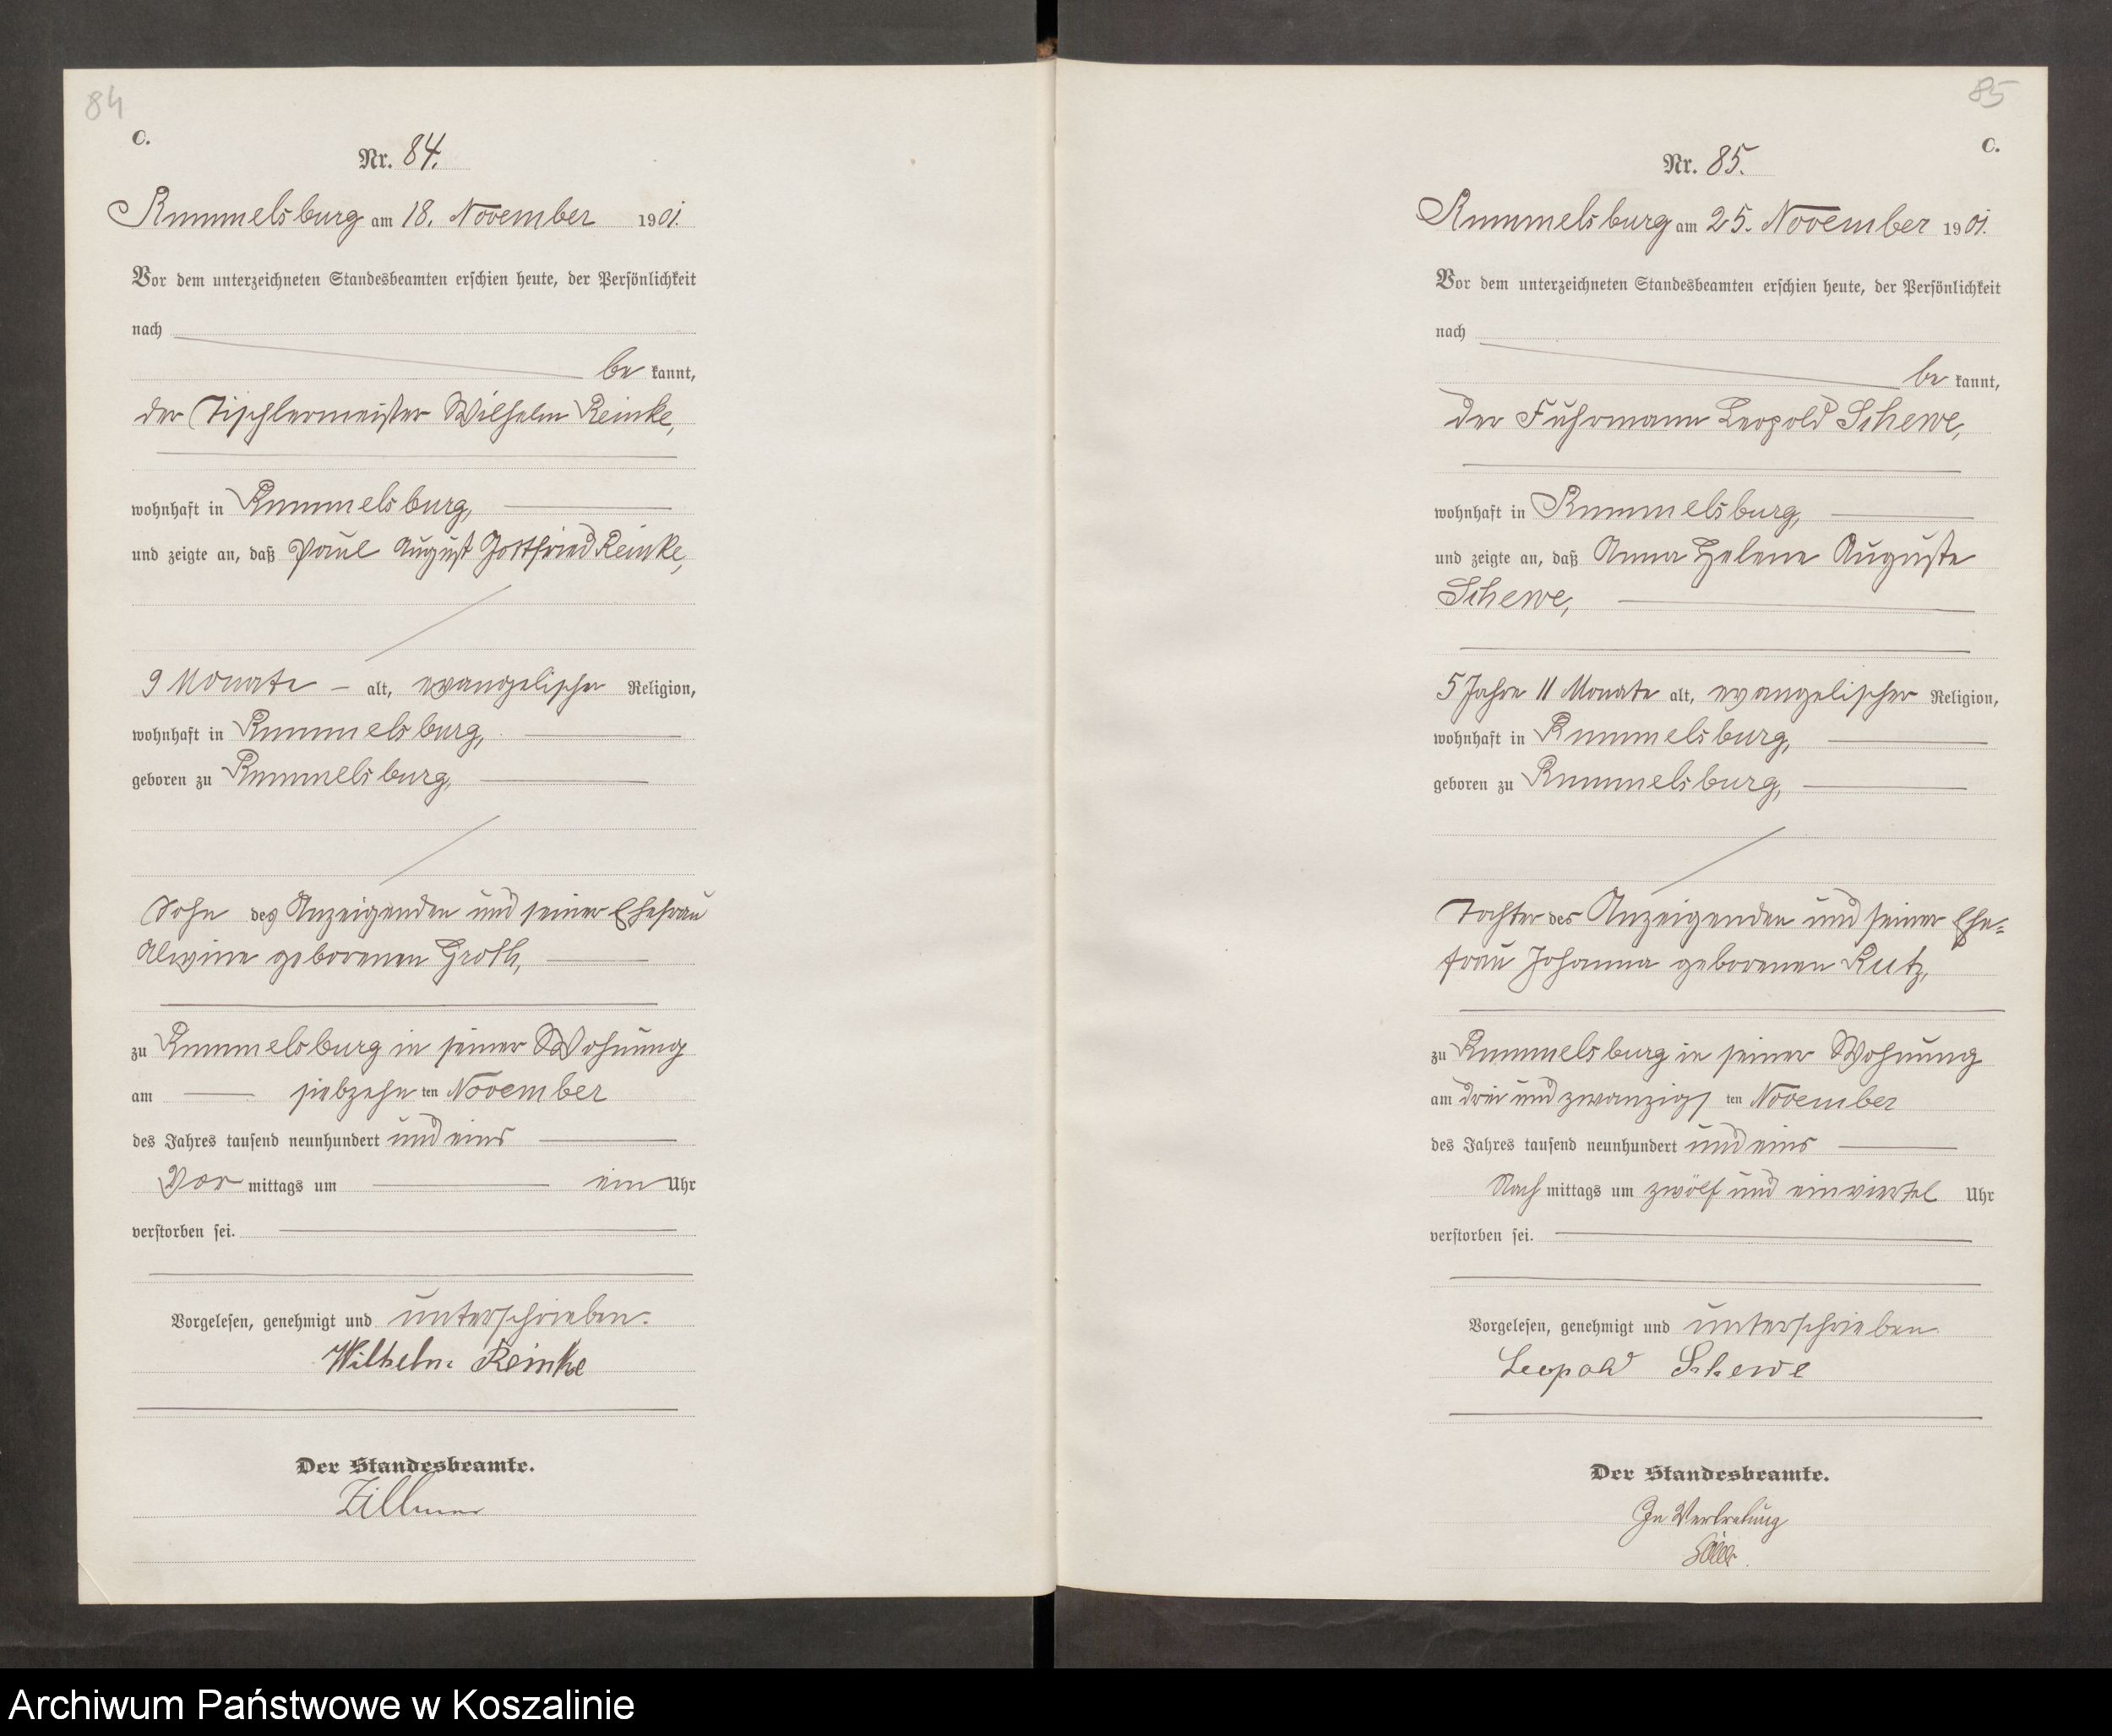 84
C.
Nr. 84.
Rummelsburg am 18. November 1901.
Vor dem unterzeichneten Standesbeamten erschien heute, der Persönlichkeit
nach
be kannt,
der Tischlermeister Wilhelm Reinke,
wohnhaft in Rummelsburg,
und zeigte an, daß Paul August Gottfried Reinke,
9 Monate – alt, evangelischer Religion,
wohnhaft in Rummelsburg,
geboren zu Rummelsburg,
Sohn des Anzeigenden und seiner Ehefrau
Alwine geborenen Groth,
zu Rummelsburg in seiner Wohnung
am siebzehn ten November
des Jahres tausend neunhundert und eins
Vor mittags um ein Uhr
verstorben sei.
Vorgelesen, genehmigt und unterschrieben.
Wilhelm Reinke
Der Standesbeamte.
Zillmer
85
C.
Nr. 85.
Rummelsburg am 25. November 1901.
Vor dem unterzeichneten Standesbeamten erschien heute, der Persönlichkeit
nach
be kannt,
der Fuhrmann Leopold Schewe,
wohnhaft in Rummelsburg,
und zeigte an, daß Anna Helene Auguste
Schewe,
5 Jahre 11 Monate alt, evangelischer Religion,
wohnhaft in Rummelsburg,
geboren zu Rummelsburg,
Tochter des Anzeigenden und seiner Ehe=
frau Johanna geborenen Rutz,
zu Rummelsburg in seiner Wohnung
am drei und zwanzigs ten November
des Jahres tausend neunhundert und eins
Nach mittags um zwölf und einviertel Uhr
verstorben sei.
Vorgelesen, genehmigt und unterschrieben
Leopold Schewe
Der Standesbeamte.
In Vertretung
Archiwum Państwowe w Koszalinie